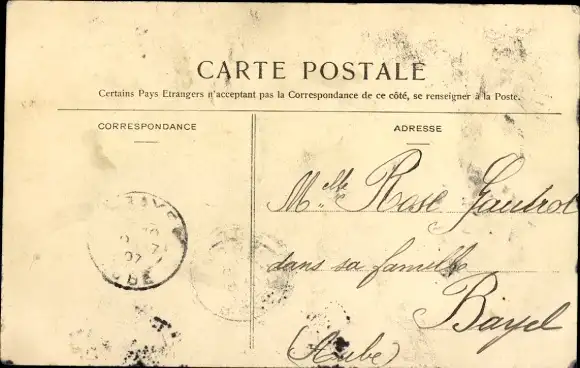 CARTE POSTALE
Certains Pays Etrangers n'acceptant pas la Correspondance de ce côté, se renseigner à la Poste.
CORRESPONDANCE
ADRESSE
Melle Rose Gautrot
dans sa famille
Bayel
(Aube)
07
AUBE